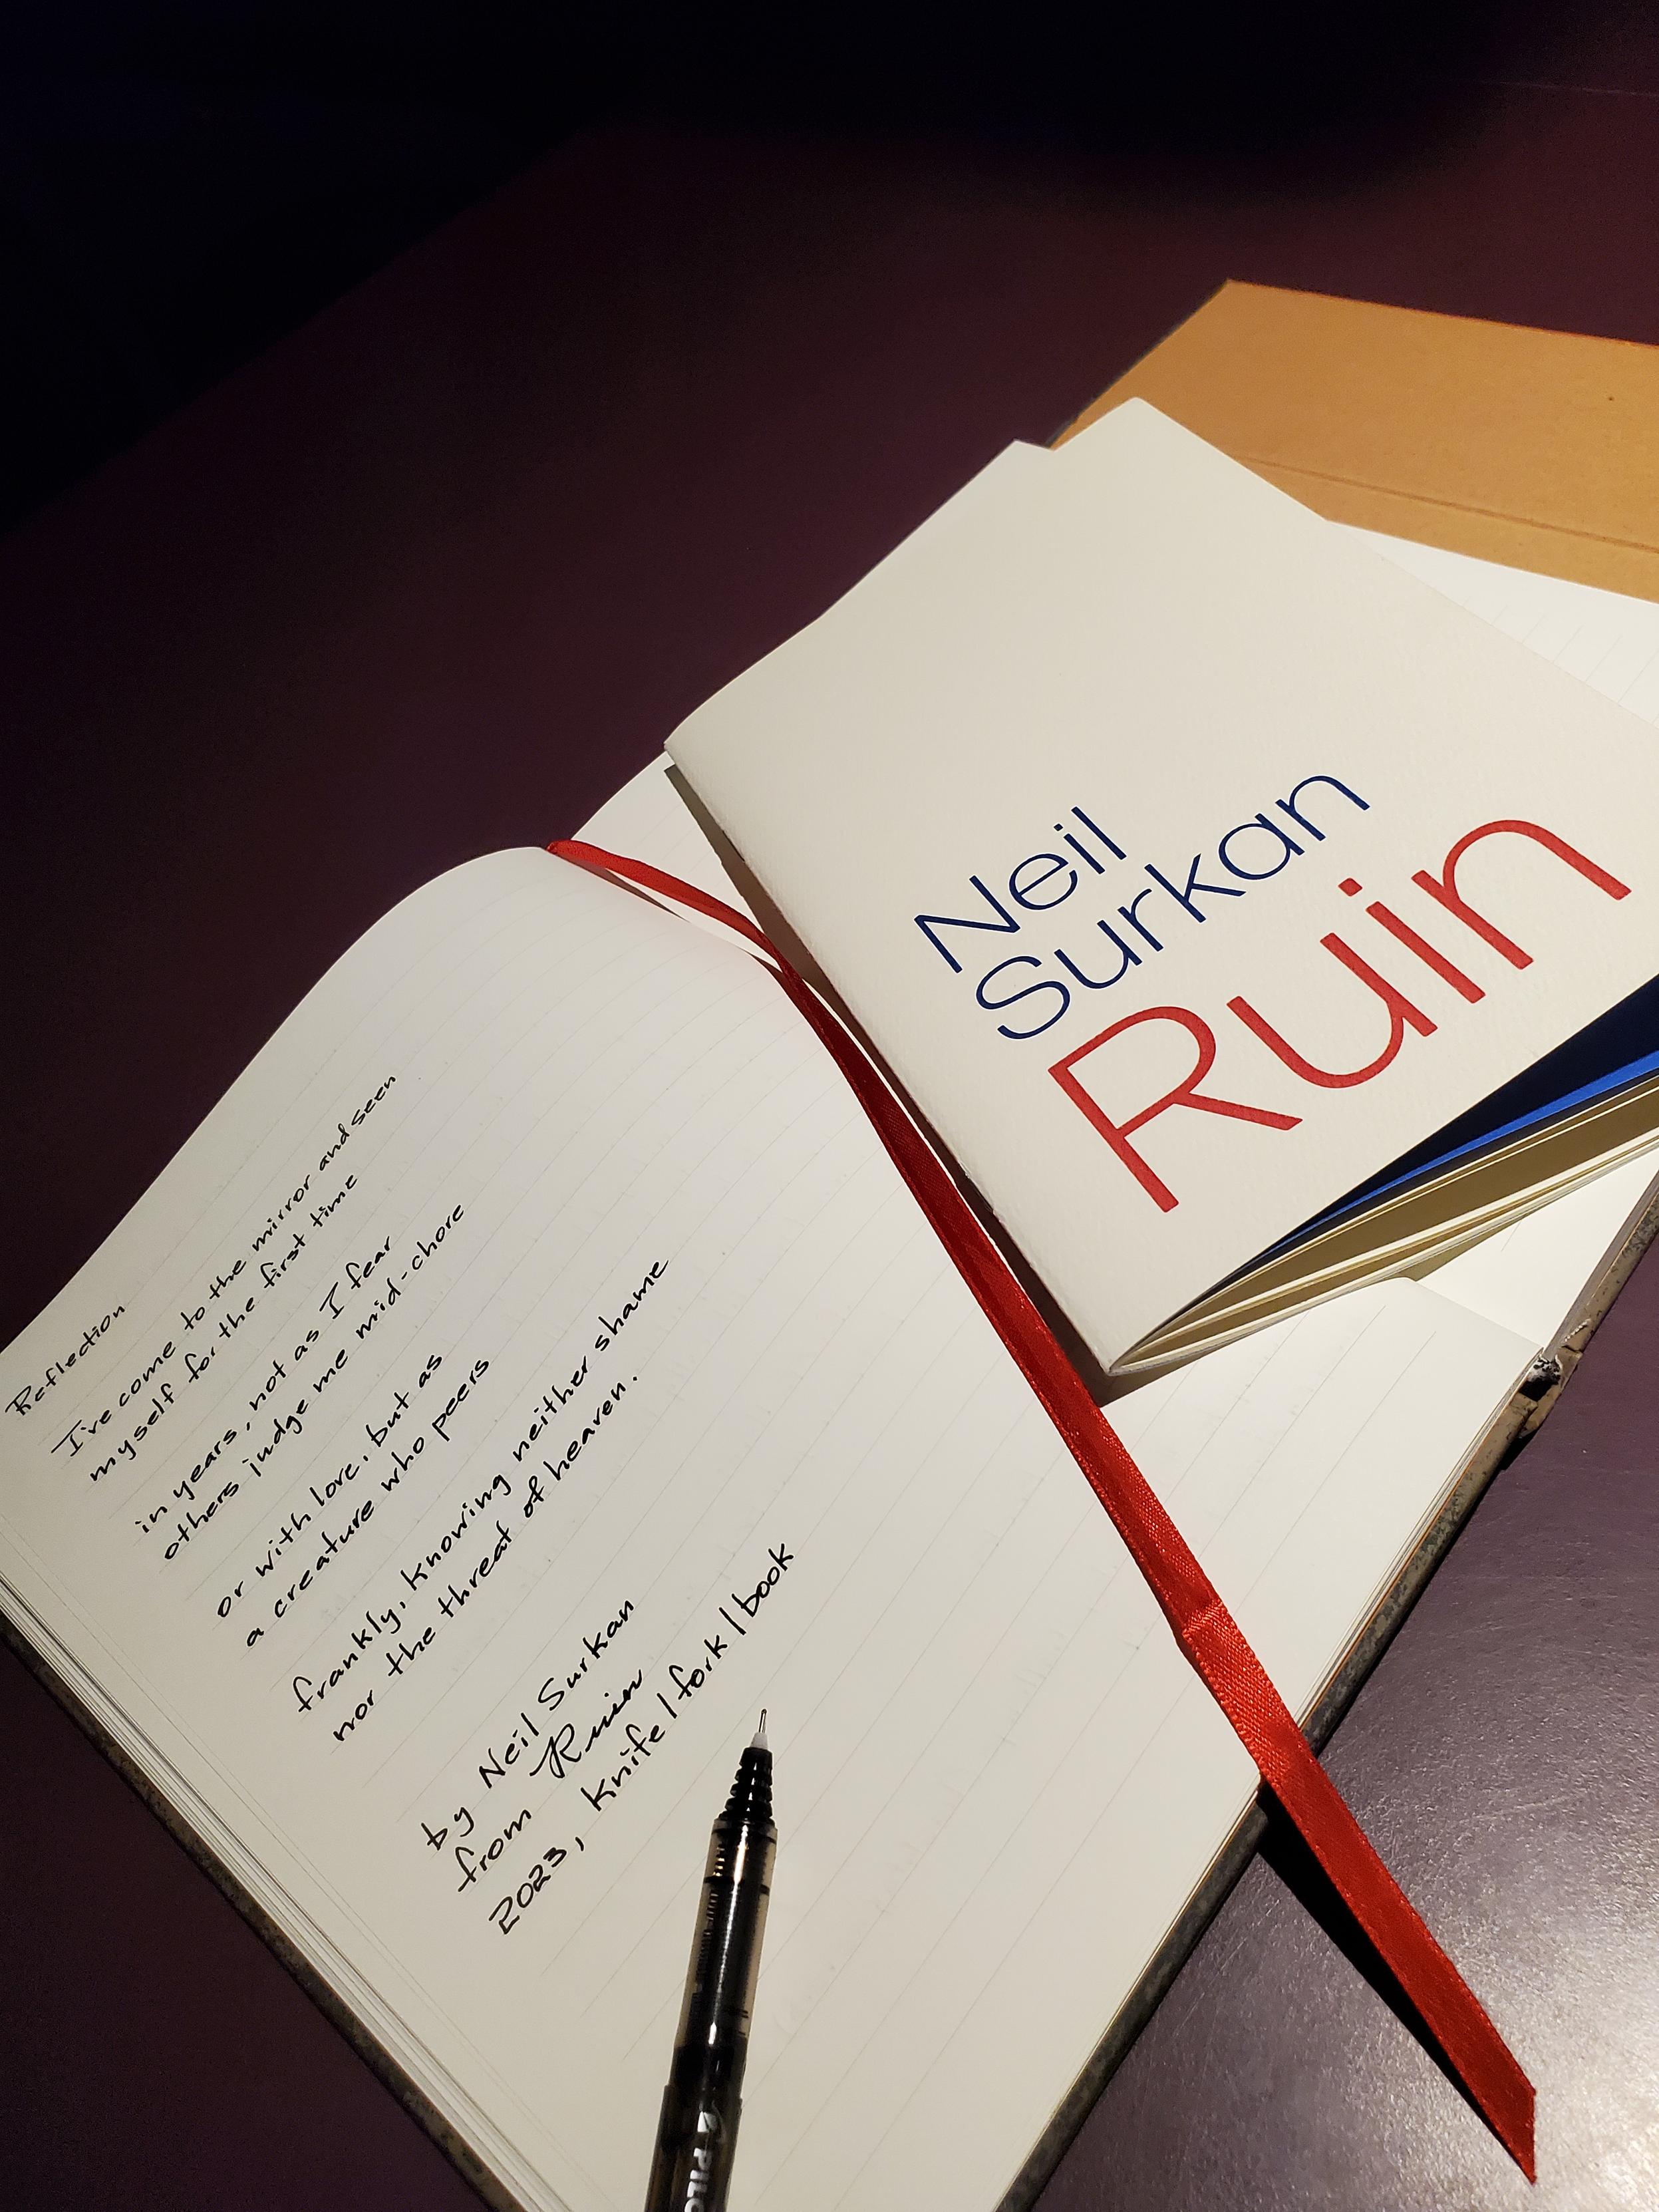 Neil
Surkan
Ruin
Reflection
I've come to the mirror and seen
myself for the first time
in years, not as I fear
others judge me mid-chore
or with love, but as
a creature who peers
frankly, knowing neither shame
nor the threat of heaven.
by Neil Surkan
from Ruin
2023, knife|fork|book
PILO